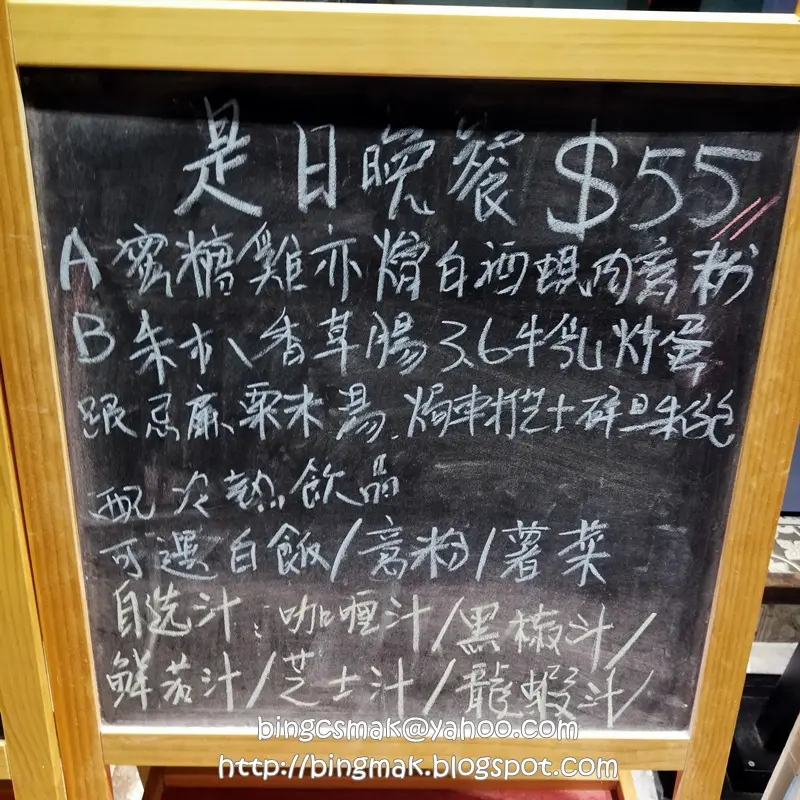 是日晚餐 $55
A 蜜糖雞亦燴白酒蜆肉意粉
B 朱扒香草腸 3.6牛乳炒蛋
跟忌廉粟米湯. 芝士
配冷熱飲品
可選白飯/意粉/薯菜
自选汁: 咖喱汁/黑椒汁/
鮮茄汁/芝士汁/龍蝦汁/
bingcsmak@yahoo.com
http://bingmak.blogspot.com